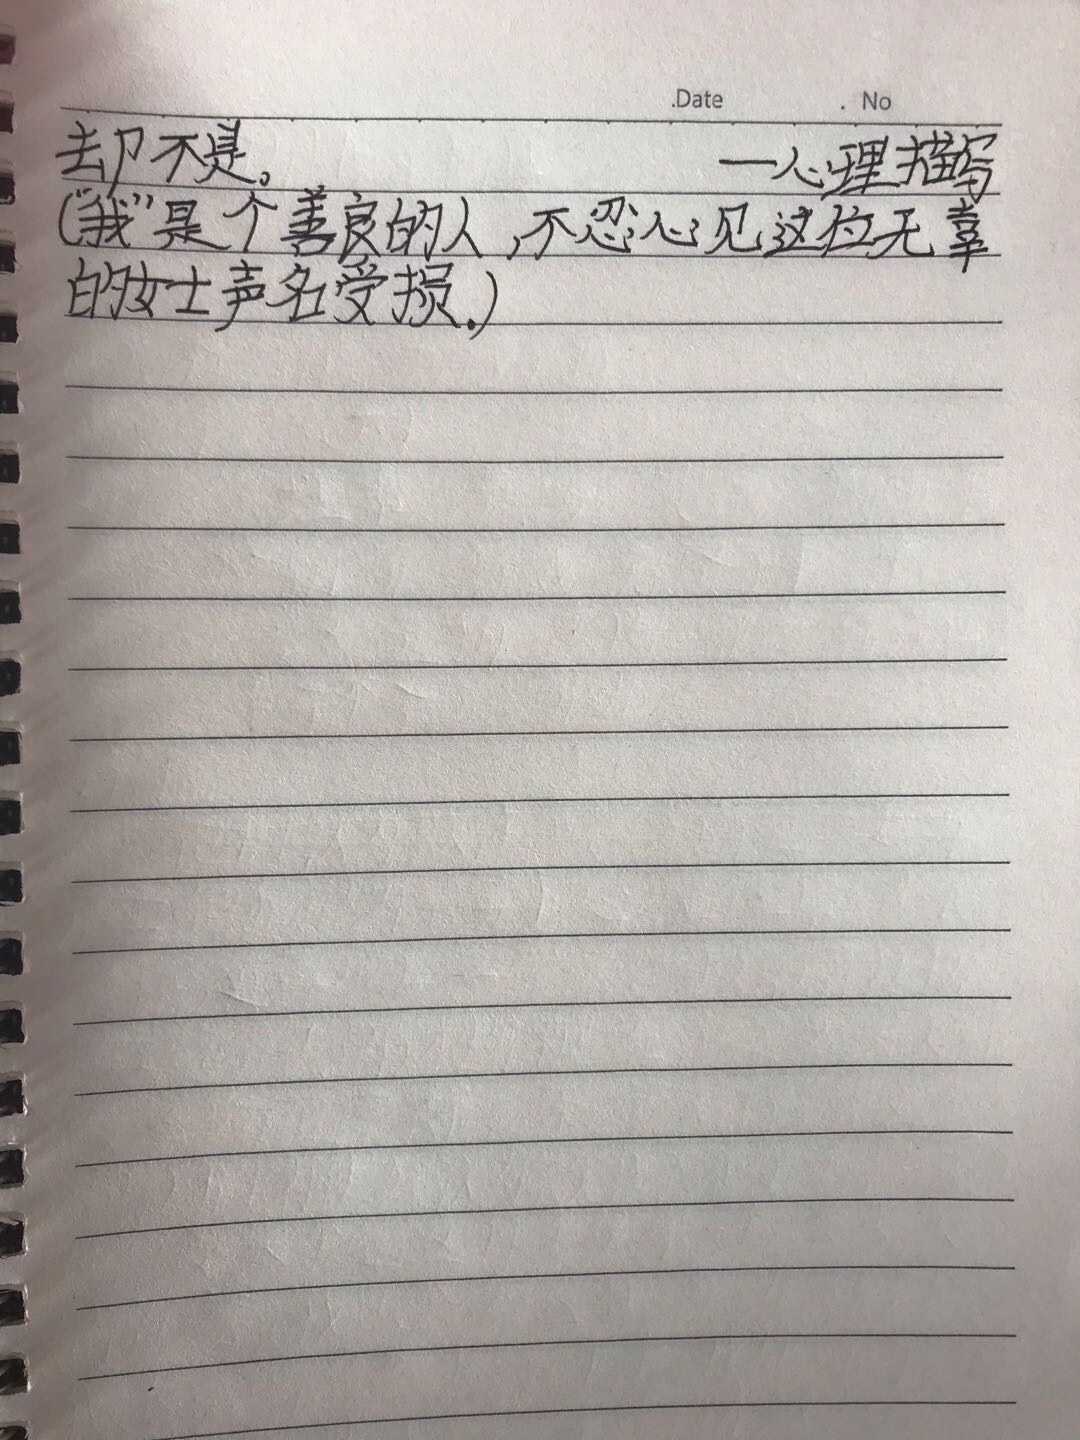 .Date . No
却不是。 一心理描写
(“我”是个善良的人,不忍心见这位无辜
的女士声名受损.)